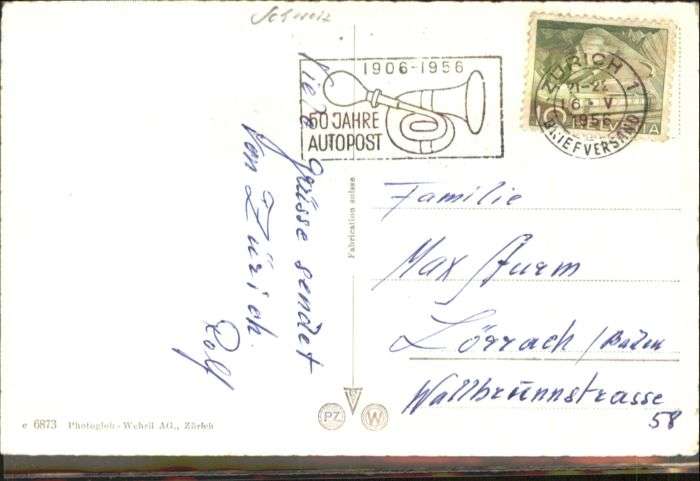 Schweiz
1906-1956
50 JAHRE
AUTOPOST
ZÜRICH 1
21-22
16. V
1956
BRIEFVERSAND
Liebe Grüsse sendet
Von Zürich.
Rolf
Fabrication suisse
Familie
Max Sturm
Lörrach/Baden
Wallbrunnstrasse
58
PZ
W
e 6873 Photoglob-Wehrli AG., Zürich